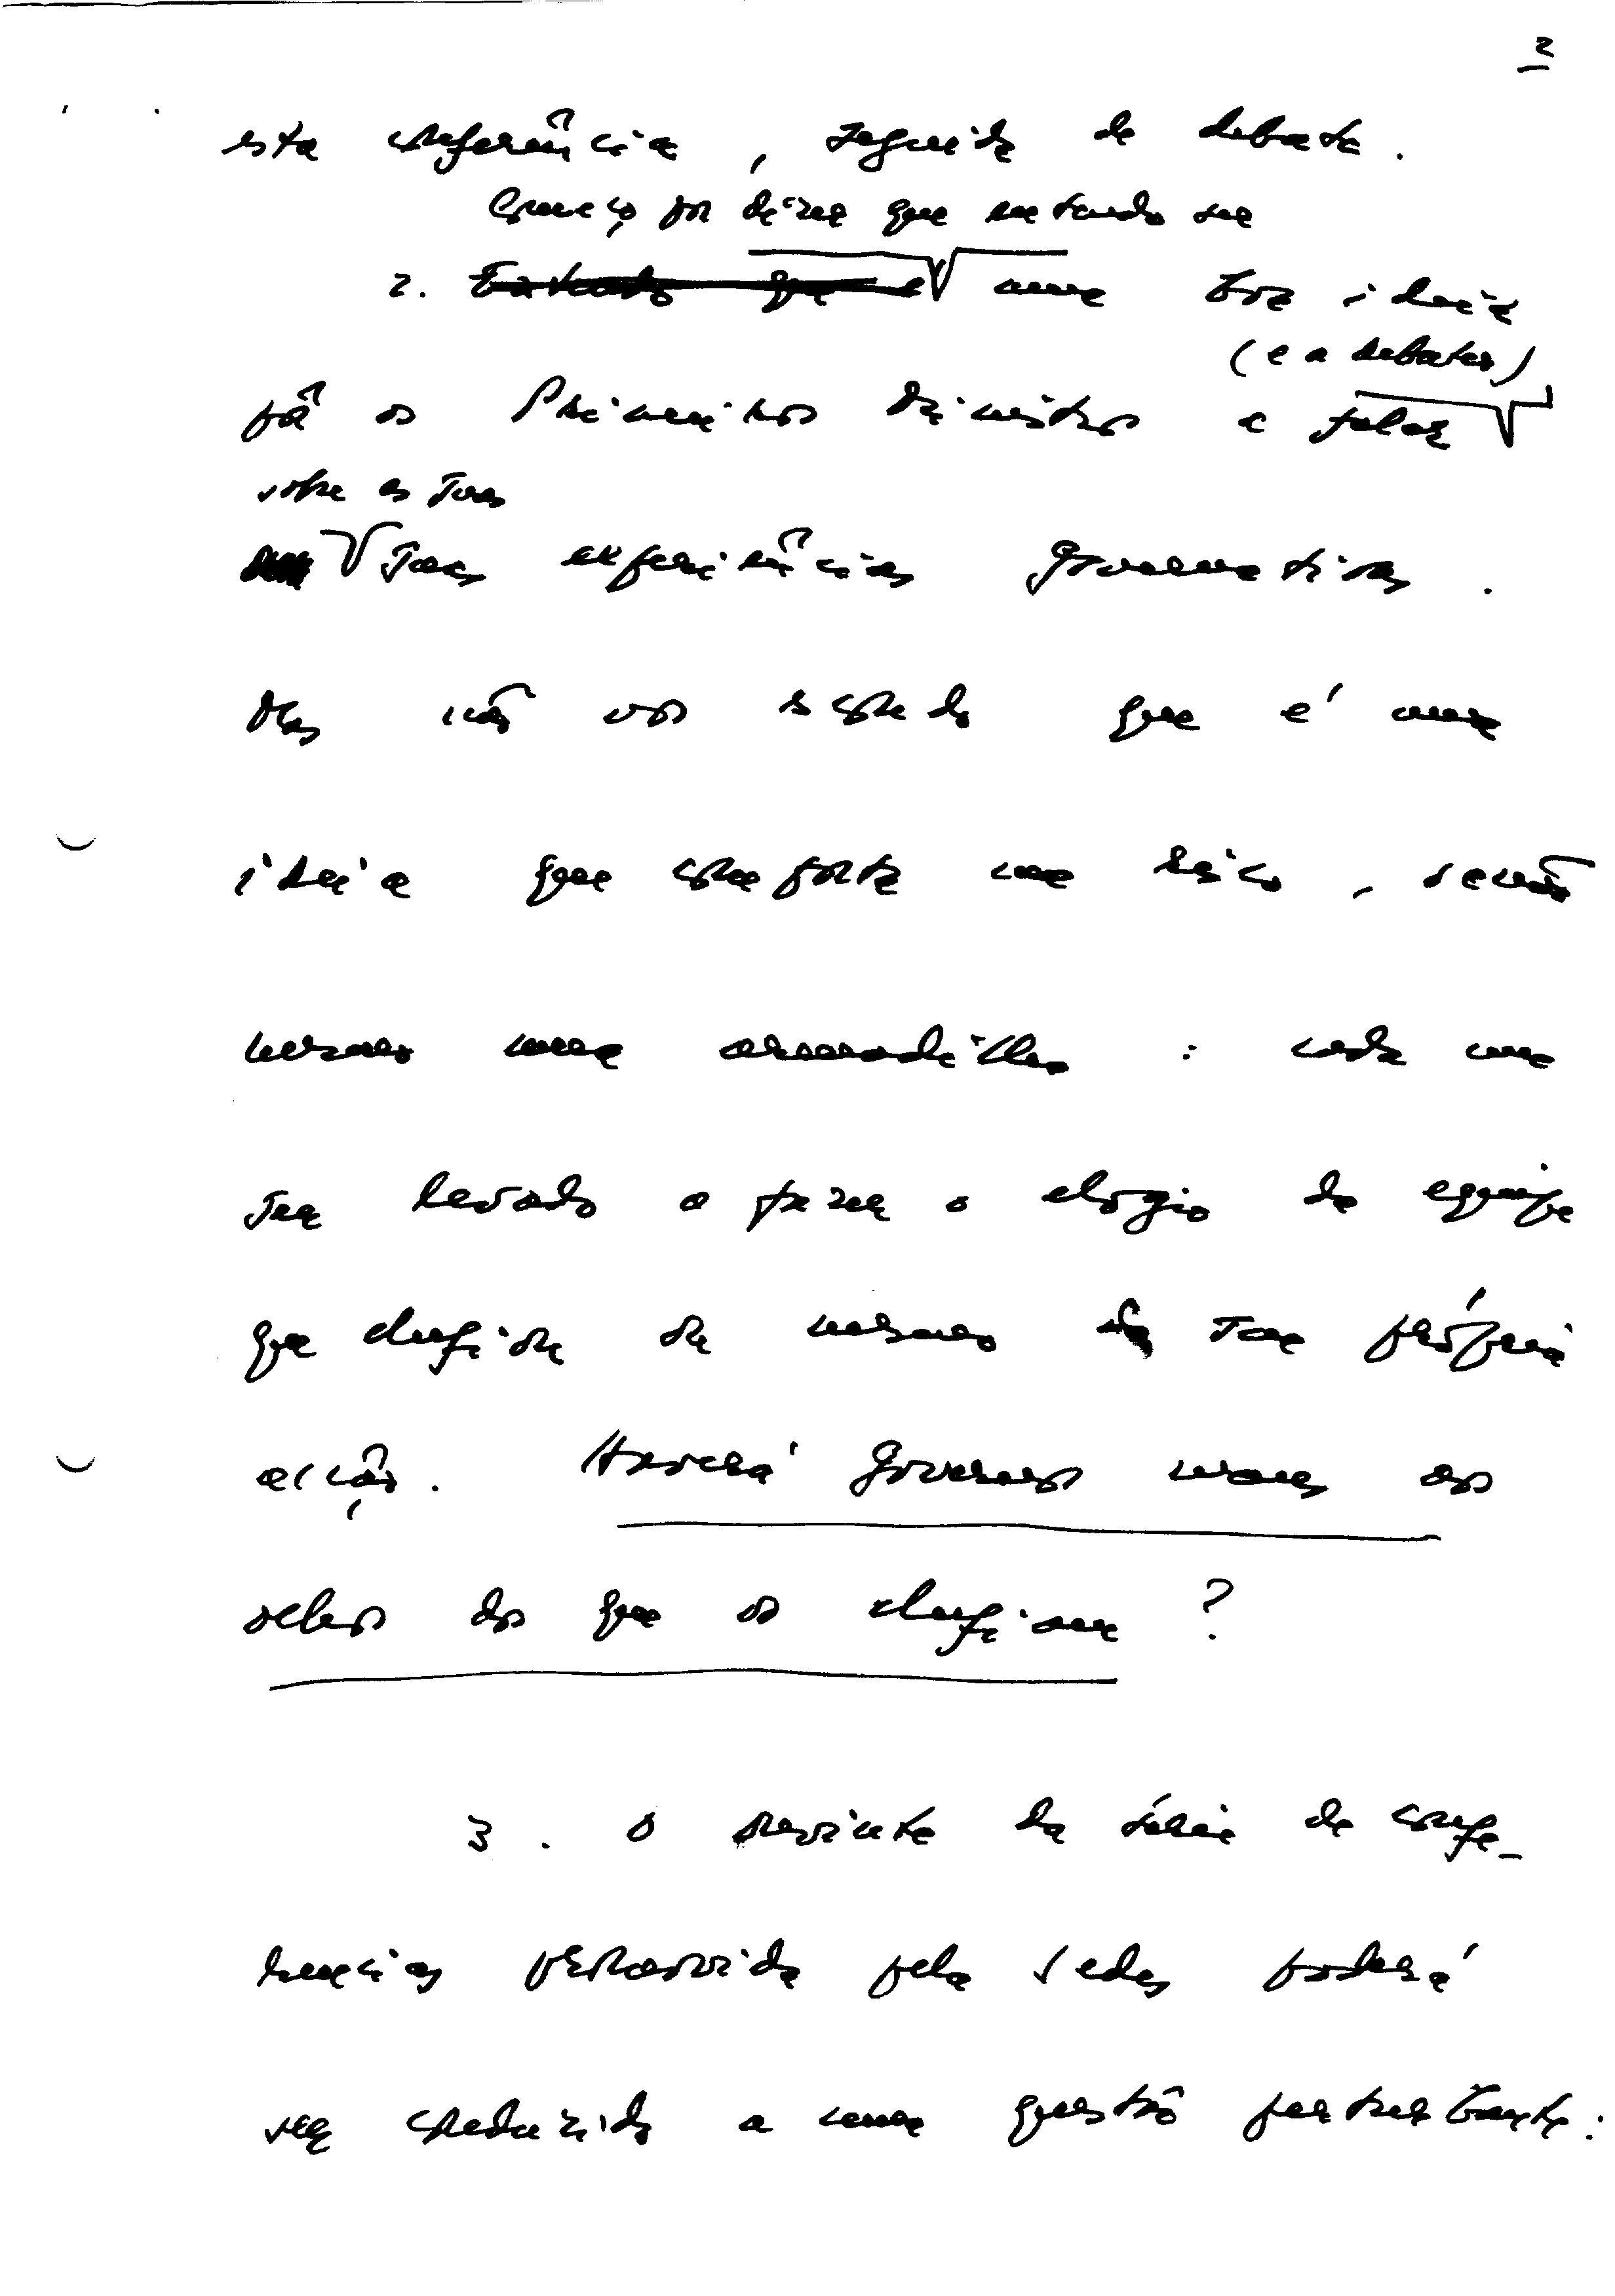 2
esta conferência, seguida de debate.
Começo por dizer que entendo ser
2. Entendo que é uma boa ideia
(e a debater)
pôr os Primeiros Ministros a falar
sobre as suas
suas experiências governativas.
Mas não vos escondo que é uma
ideia que comporta um risco, senão
mesmo uma armadilha: cada um
ser levado a fazer o elogio da equipa
que chefiou ou mesmo da sua própria
acção. Haverá governos maus aos
olhos dos que os chefiaram?
3. O ouvinte da série de confe-
rências promovida pela Sedes poderá
ser conduzido a uma questão perturbante.